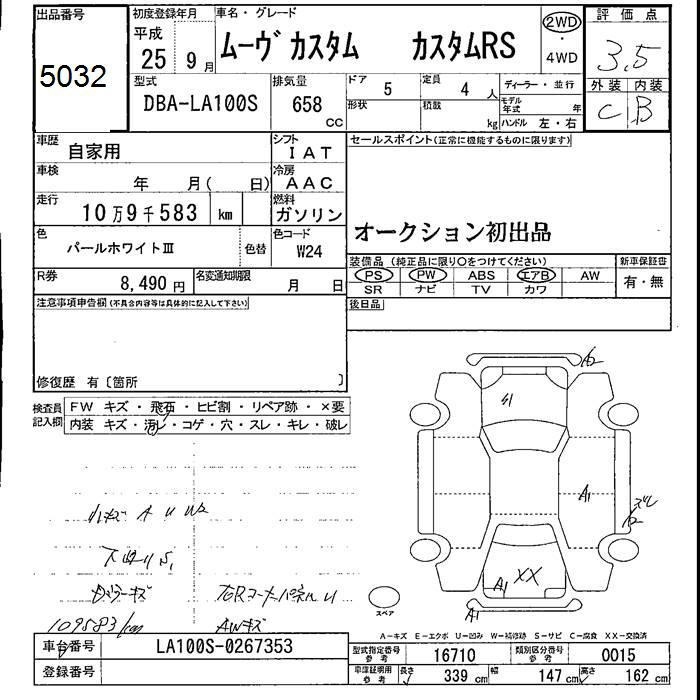 出品番号
5032
初度登録年月
平成
25 年 9 月
車名・グレード
ムーヴ カスタム カスタムRS
2WD
・
4WD
評価点
3.5
外装 内装
C B
型式
DBA-LA100S
排気量
658
CC
ドア 5
形状
定員 4 人
積載 kg
ディーラー・並行
モデル年式 年
ハンドル 左・右
車歴
自家用
シフト
IAT
セールスポイント(正常に機能するものに限ります)
オークション初出品
車検
年 月( 日)
冷房
AAC
走行
10万9千583 km
燃料
ガソリン
色
パールホワイトⅢ
色替
色コード
W24
装備品(純正品に限り○をつけてください)
PS PW ABS エアB AW
SR ナビ TV カワ
新車保証書
有・無
R券
8,490 円
名変通知期限
月 日
後日品
注意事項申告欄(不具合内容等は具体的に記入して下さい)
修復歴 有〔箇所 〕
検査員記入欄
FW キズ・飛石・ヒビ割・リペア跡・×要
内装 キズ・汚レ・コゲ・穴・スレ・キレ・破レ
小キズ A U W2
下廻り S1
右Rコーナーパネル U
109583km
AWキズ
A2
S1
A1
XX
A1
A1
スペア
A-キズ E-エクボ U-凹み W-補修跡 S-サビ C-腐食 XX-交換済
車台番号
LA100S-0267353
登録番号
型式指定番号 参考
16710
類別区分番号 参考
0015
車庫証明用 参考
長さ 339 cm
幅 147 cm
高さ 162 cm